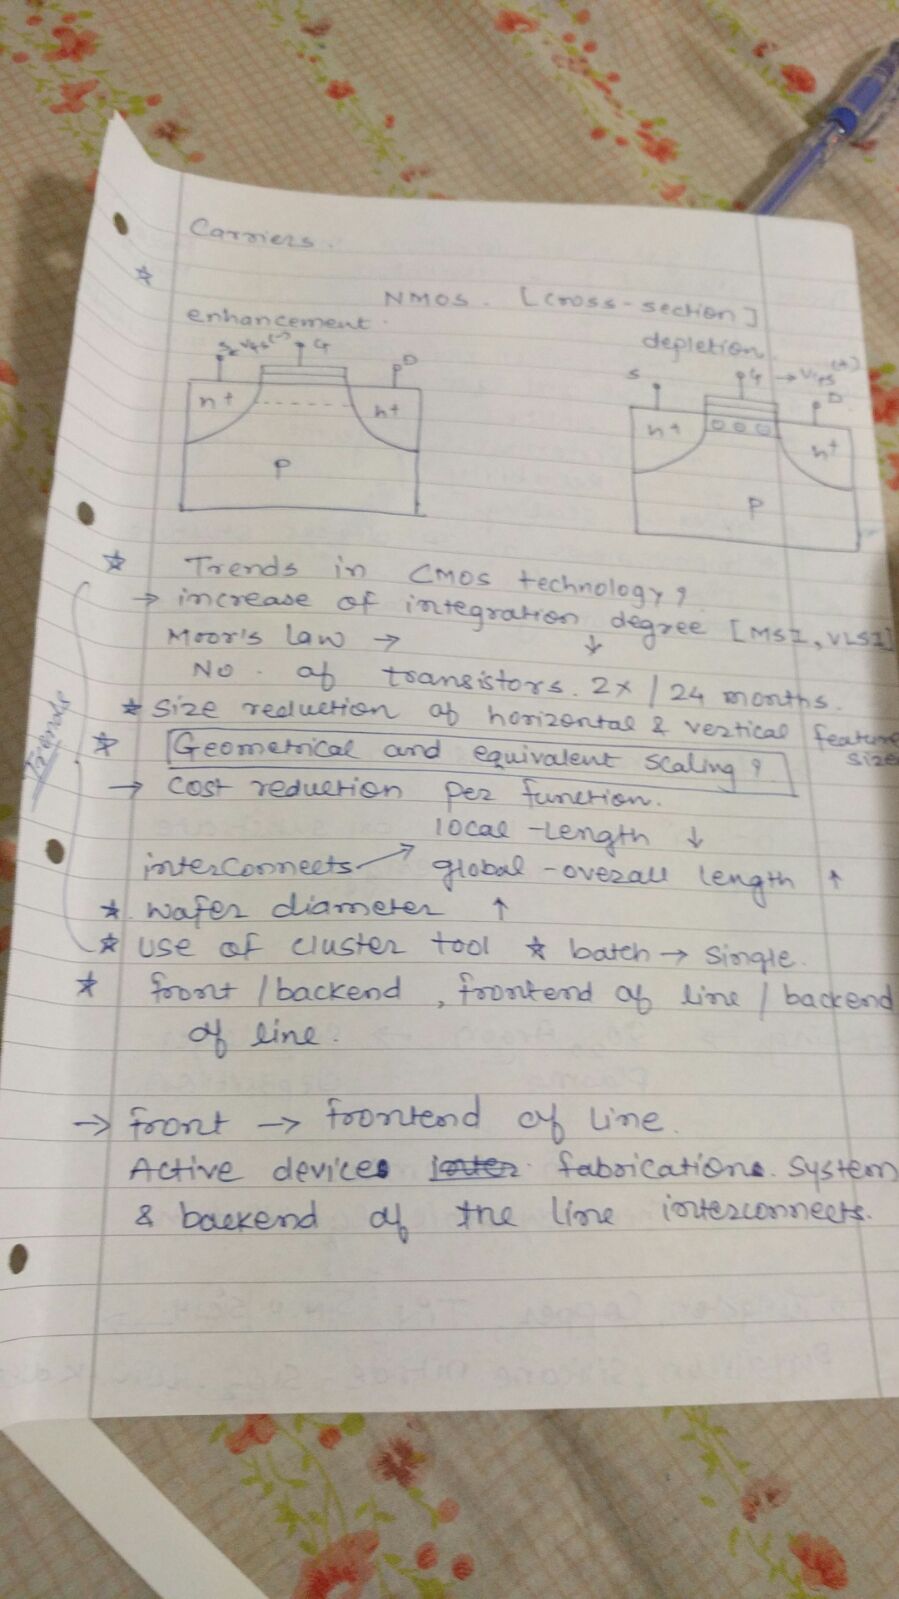 Carriers.
☆
NMOS. [cross-section]
enhancement.
depletion.
G
D
n+
n+
P
S
G
→ VGS (+)
D
n+
n+
P
☆ Trends in CMOS technology?
→ increase of integration degree [MSI, VLSI]
Moor's law → ↓
No. of transistors. 2x / 24 months.
★ Size reduction of horizontal & vertical feature size
☆ Geometrical and equivalent scaling?
→ cost reduction per function.
local - length ↓
interconnects → global - overall length ↑
★ wafer diameter ↑
★ use of cluster tool ★ batch → single.
★ front / backend, frontend of line / backend
of line.
Trends
→ front → frontend of line.
Active devices fabrications. system
& backend of the line interconnects.